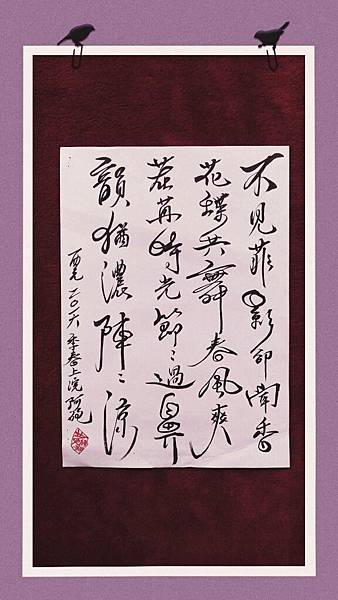 不見菲影卻聞香
花蝶共舞春風爽
荏苒時光節〻過鼻
韻猶濃陣〻涼
西元二〇一六季春上浣阿